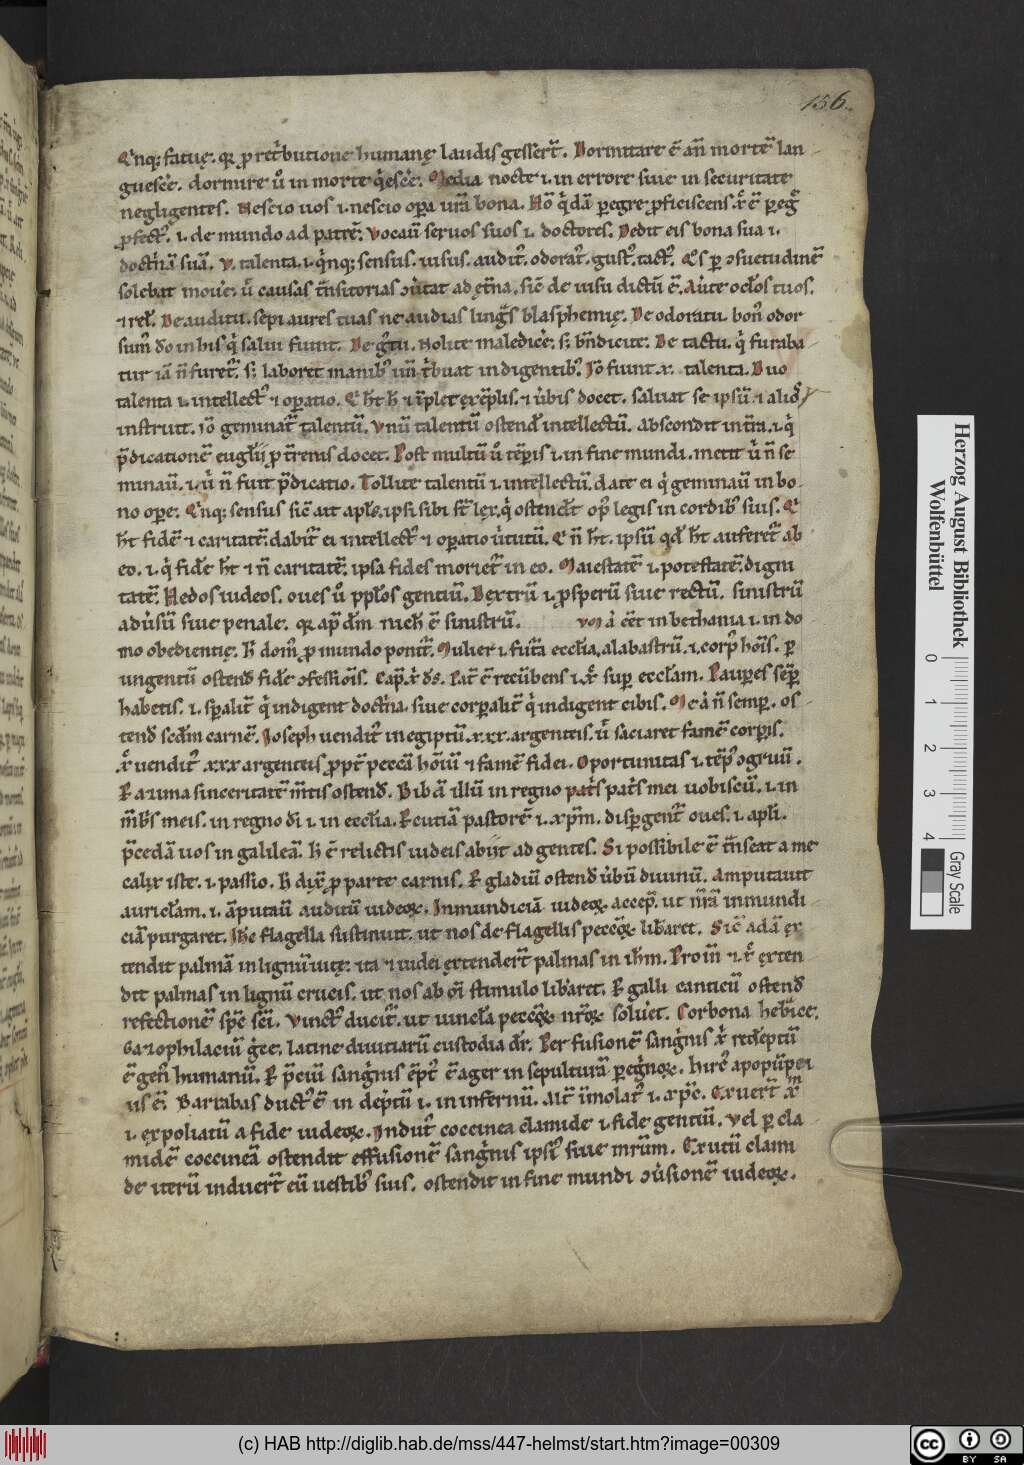 156.
Qnq; fatuę. qr p ret'butione humanę laudis gesser̄t. Dormitare ē añ mortē lan
guesce͛. dormire u͛ in morte q͛escẻ. Media nocte .i. in errore siue in securitate
negligentes. Nescio uos .i. nescio opa ura bona. Hō q'dā pegre pficiscens. xp̄c ē peg
pfect'. i. de mundo ad patrē. Vocauit seruos suos .i. doctores. Dedit eis bona sua .i.
doct'nā suā. V. talenta .i. q'nq; sensus. uisus. audit'. odorat'. gust'. tact'. Q̄s p ɔsuetudinē
solebat mouẻ. ū causas t̄nsitorias ɔutat ad et̄na. sic̄ de uisu dictū ē. Aute oclos tuos.
⁊ rel. De auditu. sepi aures tuas ne audias linguā blasphemię. De odoratu. bon' odor
sum' do in his q' salui fiunt. De g'tu. Nolite maledicẻ. s; bn̄dicite. De tactu. q' furaba
tur iā ñ furet'. s; laboret manib' un̄ t'buat indigentib'. Jō fiunt .x. talenta. Duo
talenta .i. intellect' ⁊ opatio. Q' ht h ⁊ īplet exēplis. ⁊ ubis docet. saluat se ipsū ⁊ alios
instruit. iō geminat' talentū. Vnū talentū ostend intellectū. Abscondit in t̄ra .i. q'
p̄dicationē euglii p t̄renis docet. Post multū u͛ tēpis .i. in fine mundi. metit u' ñ se
minauit .i. u' ñ fuit p̄dicatio. Tollite talentū .i. intellectū. date ei q' geminauit in bo
no opere. Q'nq; sensus sic̄ ait apls. ipsi sibi st̄ lex. q' ostendt op' legis in cordib' suis. Q'
ht fidē ⁊ caritatē. dabit' ei intellect' ⁊ opatio uirtutū. Q' ñ ht. ipsū qd ht auferet' ab
eo. .i. q' fidē ht ⁊ ñ caritatē. ipsa fides moriet' in eo. Maiestatē .i. potestatē. digni
tatē. Hedos iudeos. oues u͛ pplos gentiū. Dextrū .i. psperū siue rectū. sinistrū
aduisū siue penale. qr ap̄ dm̄ nich ē sinistrū. eēt in bethania .i. in do
mo obedientię. H̄ dom' p mundo ponit'. Mulier .i. fut̄a ecclia. alabastrū .i. corp' hoīs. p
ungentū ostend fidē ɔfessiōis. Cap̄. xp̄ ds. Pat̄ ē recūbens .i. xp̄ sup ecclam. Paupes semp
habetis. i. spalit' q' indigent doct'na. siue corpalit' q' indigent cibis. Me ā ñ semp. os
tend scdm carnē. Joseph uendit' in egiptū .xxx. argenteis. u' saciaret famē corpis.
xp̄ uendit' xxx argenteis. ppt̄ peccā hoīū ⁊ famē fidei. Oportunitas .i. tēp' ɔgruū.
R azima sinceritatē mtis ostend. Bibā illū in regno pat's pat's mei uobiscū. i. in
mbis meis. in regno di .i. in ecclia. R cutiā pastorē .i. xpm. dispgent' oues. i. apli.
p̄cedā uos in galileā. h ē relictis iudeis abiit ad gentes. Si possibile ē t̄nseat a me
calix iste. i. passio. h dix p parte carnis. R gladiū ostend ubū diuinū. Amputauit
auriclam. i. āputauit auditū iudeoꝝ. Inmundiciā iudeoꝝ accep. ut nr̄ā inmundi
ciā purgaret. Ihc flagella sustinuit. ut nos de flagellis peccoꝝ libaret. Sic̄ adā ex
tendit palmā in lignū uitę. ita ⁊ iudei extender̄t palmas in ihm. Pro in ⁊ xp̄ exten
dit palmas in lignū crucis. ut nos ab oi stimulo libaret. R galli canticū ostend
refectionē spc sci. Vinct' ducit'. ut uincla peccoꝝ nr̄oꝝ soluet. Corbona hebrice.
Gazophilaciū gc̄e. latine diuitiarū custodia dr. Per fusionē sang'nis xp̄ redeptū
ē gen' humanū. R p̄ciū sang'nis ēpt' ē ager in sepulturā peg'noꝝ. hirc' apopūpei
us ē. Barrabas duct' ē in deptū .i. in infernū. Alt̄ īmolat' .i. xpc. Exuert xm̄
.i. expoliatū a fide iudeoꝝ. Indut' coccinea clamide .i. fide gentiū. Vel p cla
midē coccineā ostendit effusionē sang'nis ipsi' siue mrum. Exutū clami
de iterū induert̄ eū uestib' suis. ostendit in fine mundi ɔuisionē iudeoꝝ.
Herzog August Bibliothek
Wolfenbüttel
0 1 2 3 4
Gray Scale
(c) HAB http://diglib.hab.de/mss/447-helmst/start.htm?image=00309
cc BY SA